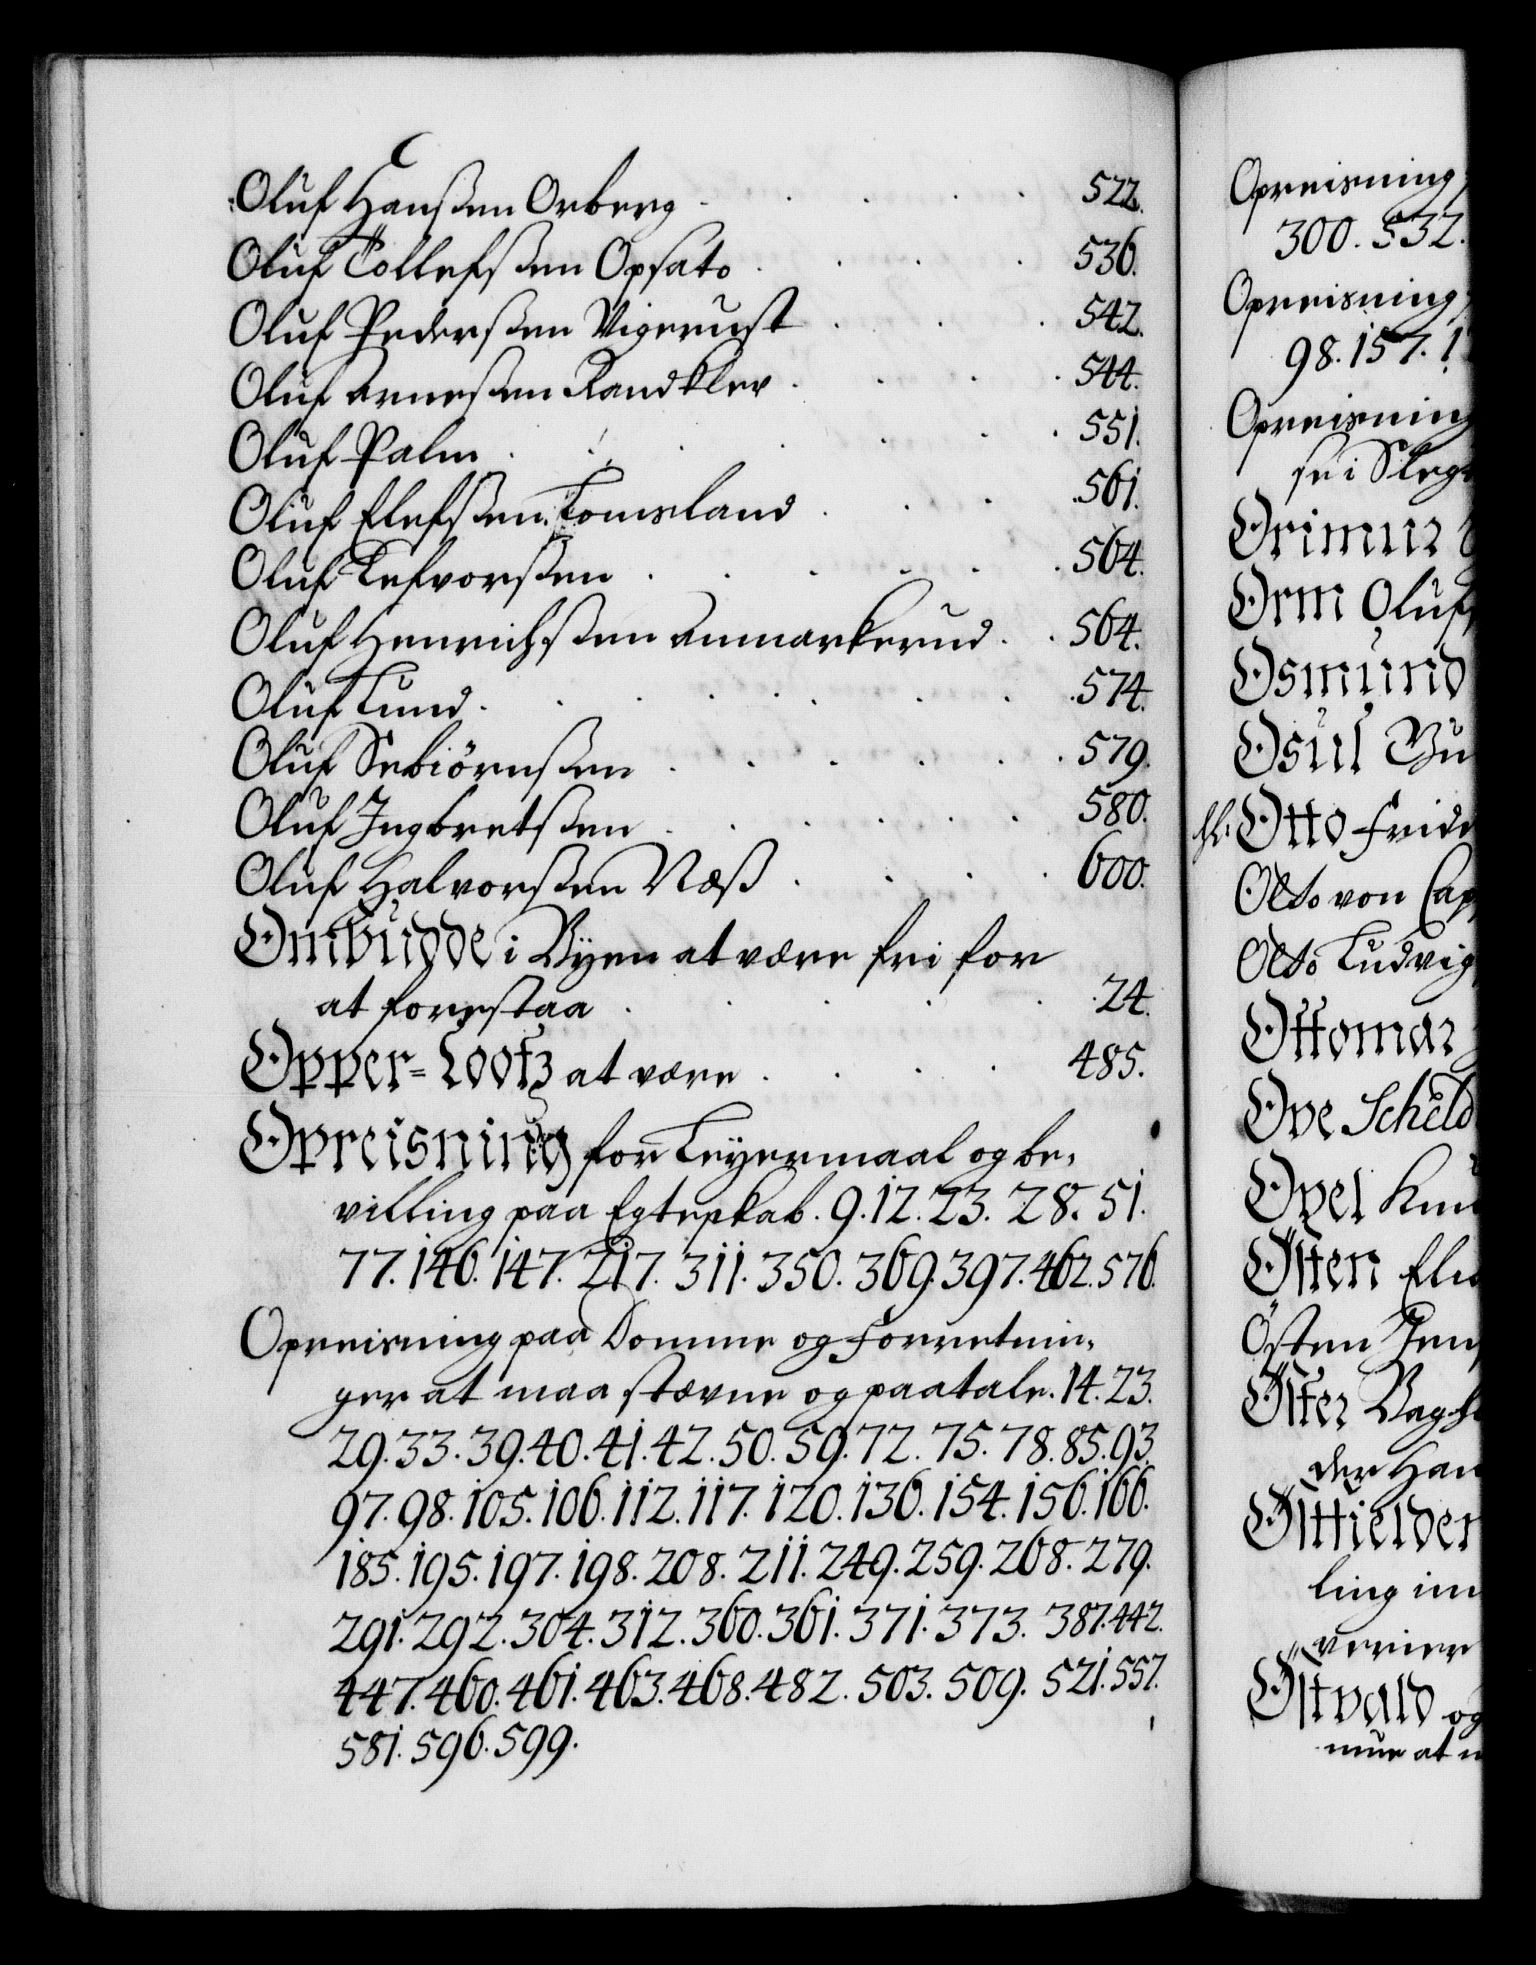 Oluf Hanssen Orberg . . . . 522.
Oluf Tollefssen Opsato . . . . 536.
Oluf Pederssen Vigerust . . . 542.
Oluf Arnessen Randklev . . . . 544.
Oluf Palm . . . . . . 551.
Oluf Elefssen Tomsland . . . 561.
Oluf Tefvorssen . . . . . . 564.
Oluf Henrichssen Anmarkerud . . 564.
Oluf Lund . . . . . . 574.
Oluf Sebiörnssen . . . . . . 579.
Oluf Ingbretssen . . . . . . 580.
Oluf Halvorssen Næss . . . . 600.
Ombudde i Byen at være fri for
at forestaa . . . . . 24.
Opper-Lootz at være . . . . 485.
Opreisning for Leyermaal og be-
villing paa Egteskab. 9. 12. 23. 28. 51.
77. 146. 147. 217. 311. 350. 369. 397. 462. 576.
Opreisning paa Domme og Forretnin-
ger at maa stævne og paatale. 14. 23.
29. 33. 39. 40. 41. 42. 50. 59. 72. 75. 78. 85. 93.
97. 98. 105. 106. 112. 117. 120. 136. 154. 156. 166.
185. 195. 197. 198. 208. 211. 249. 259. 268. 279.
291. 292. 304. 312. 360. 361. 371. 373. 387. 442.
447. 460. 461. 463. 468. 482. 503. 509. 521. 557.
581. 596. 599.
Opreisning
300. 532.
Opreisning
98. 157. 1
Opreisning
se i Sleg
Orimur
Orm Oluf
Osmund
Osul Bu
Otto Frid
Otto von Cap
Otto Ludvig
Ottomar
Ove Scheld
Ovel Knu
Östen Elu
Östen Jen
Öster Bag
der Han
Östfielder
ling im
verier
Östvald og
mue at